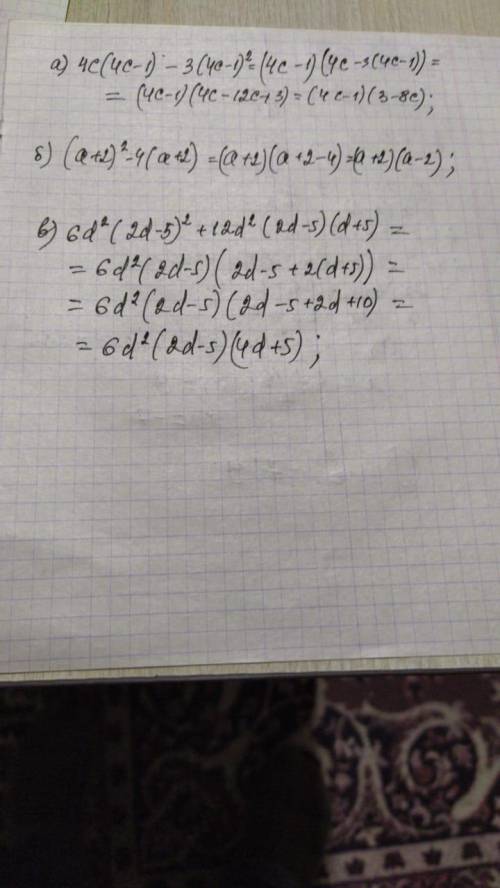 а) 4c(4c-1) - 3(4c-1)² = (4c-1)(4c-3(4c-1)) =
= (4c-1)(4c-12c+3) = (4c-1)(3-8c);
б) (a+2)² - 4(a+2) = (a+2)(a+2-4) = (a+2)(a-2);
в) 6d²(2d-5)² + 12d²(2d-5)(d+5) =
= 6d²(2d-5)(2d-5+2(d+5)) =
= 6d²(2d-5)(2d-5+2d+10) =
= 6d²(2d-5)(4d+5);